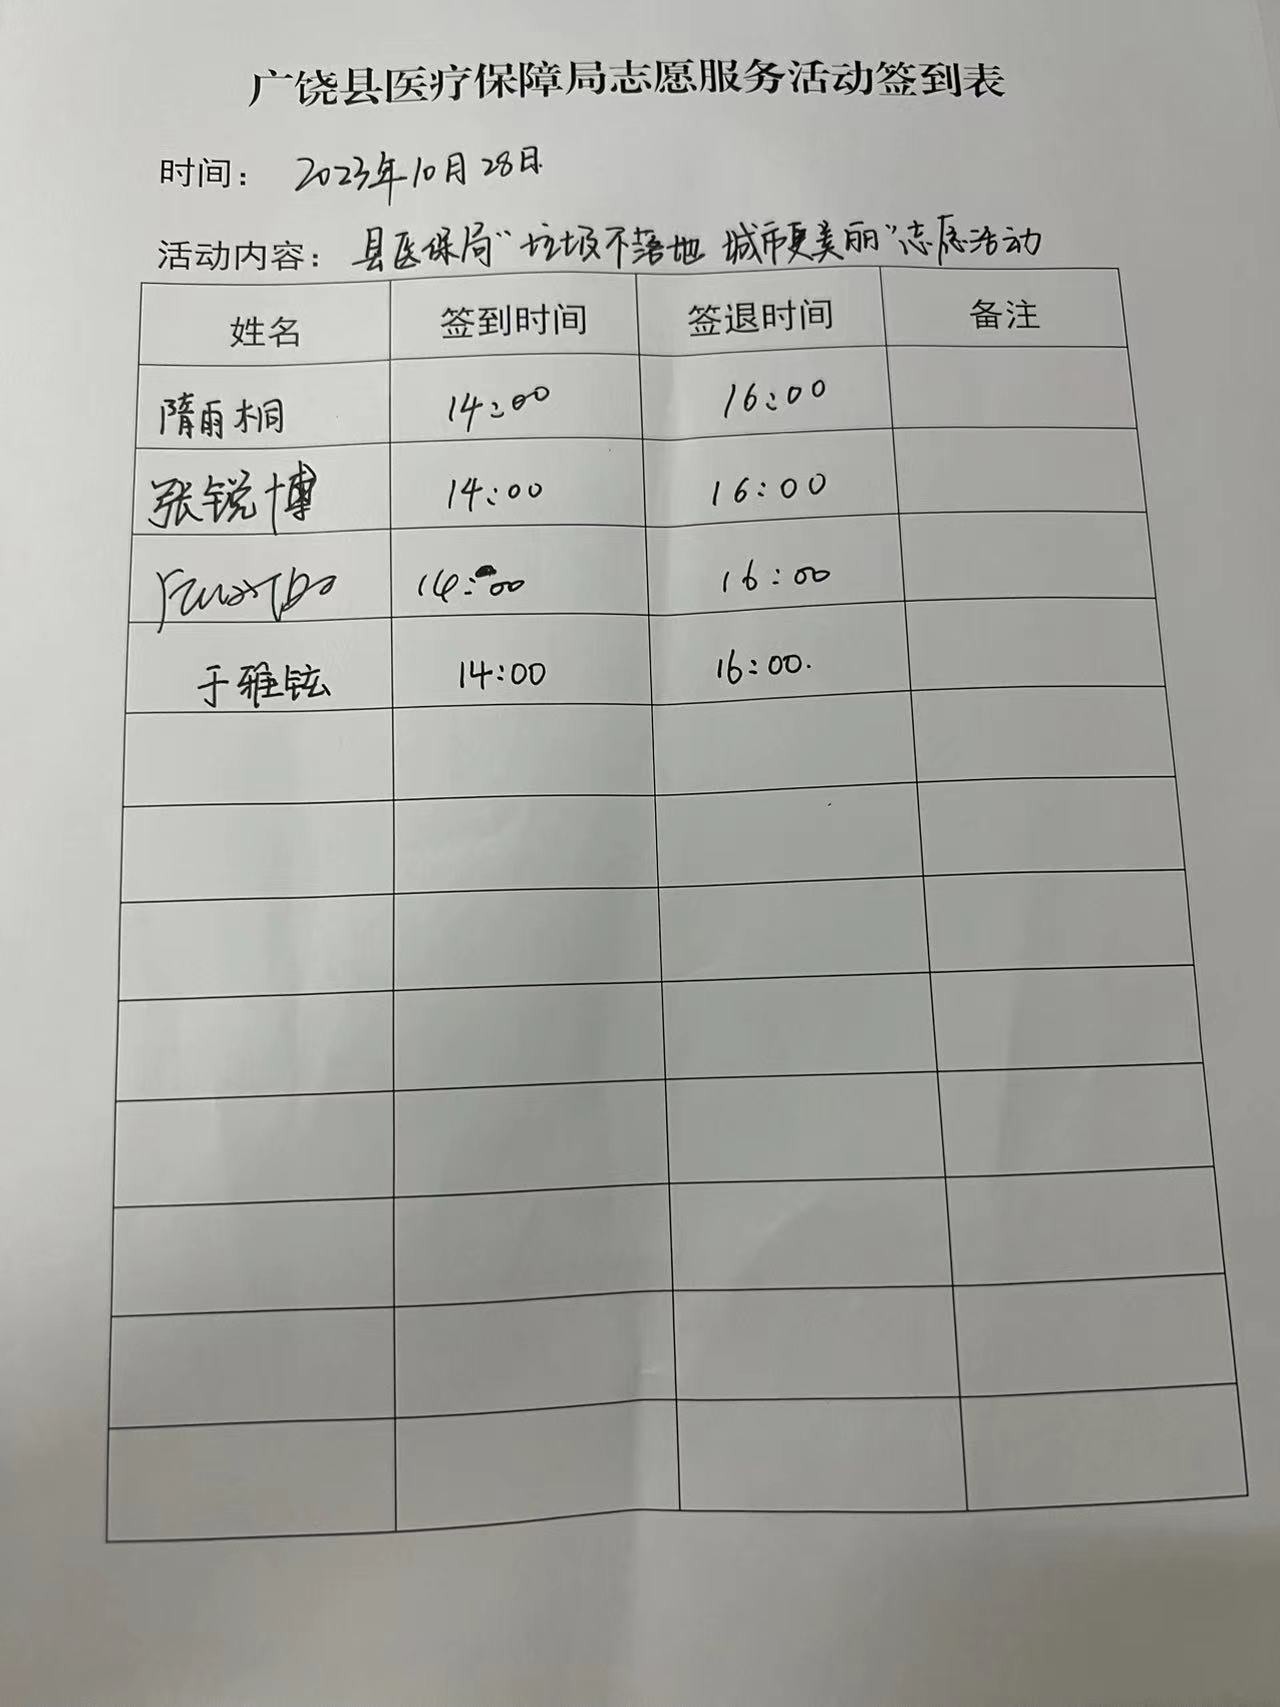 广饶县医疗保障局志愿服务活动签到表
时间： 2023年10月28日
活动内容： 县医保局“垃圾不落地 城市更美丽”志愿活动
姓名 签到时间 签退时间 备注
隋雨桐 14:00 16:00
张锐博 14:00 16:00
14:00 16:00
于雅铉 14:00 16:00.